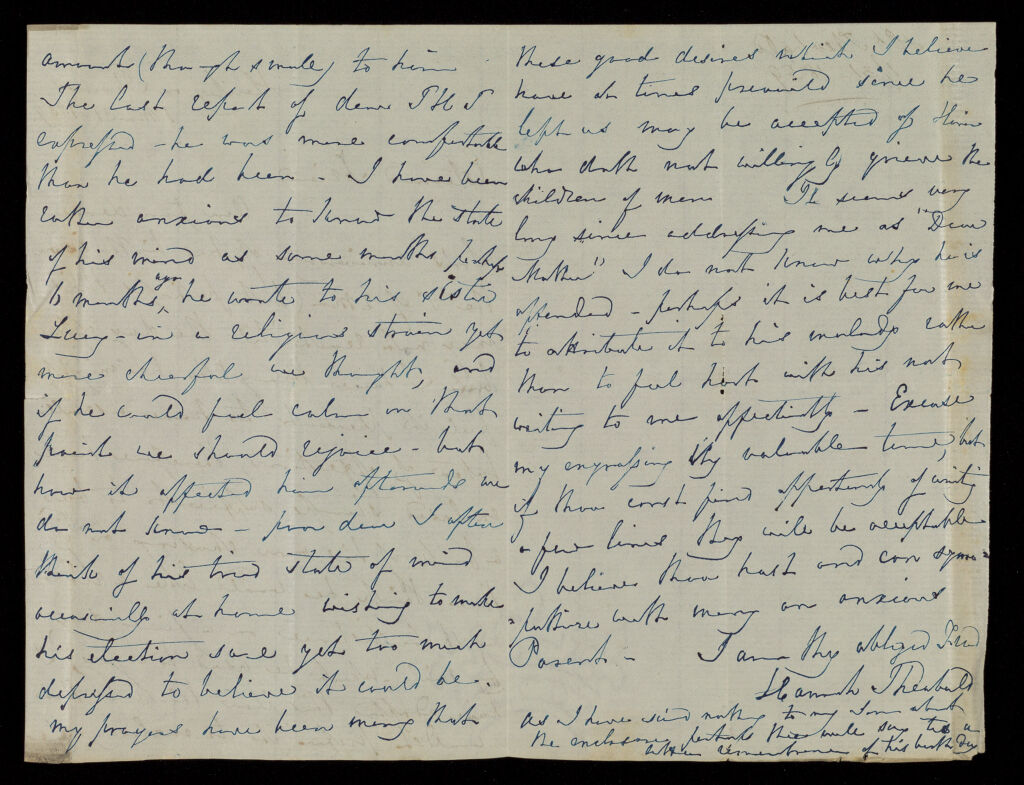 amount (though small) to him
The last report of dear T H T
expressed - he was more comfortable
than he had been - I have been
rather anxious to know the state
of his mind as some months perhaps
6 months ago, he wrote to his sister
Lucy - in a religious strain yet
more cheerful we thought, and
if he could feel calm on that
point we should rejoice - but
how it affected him afterwards we
do not know - poor dear I often
think of his tried state of mind
occasionally at home wishing to make
his election sure yet too much
depressed to believe it could be.
my prayers have been many that
these good desires which I believe
have at times prevailed since he
left us may be accepted of Him
who doth not willingly grieve the
children of men It seems very
long since addressing me as "Dear
Mother" I do not know why he is
offended - perhaps it is best for me
to attribute it to his malady rather
than to feel hurt with his not
writing to me affectionately - Excuse
my engrossing thy valuable time, but
if thou canst find opportunity of writing
a few lines they will be acceptable
I believe thou hast and can sym=
=pathize with many an anxious
Parent - I am thy obliged Friend
Hannah Theobald
As I have said nothing to my Son about
the enclosure perhaps thee will say tis a
little remembrance of his birth day